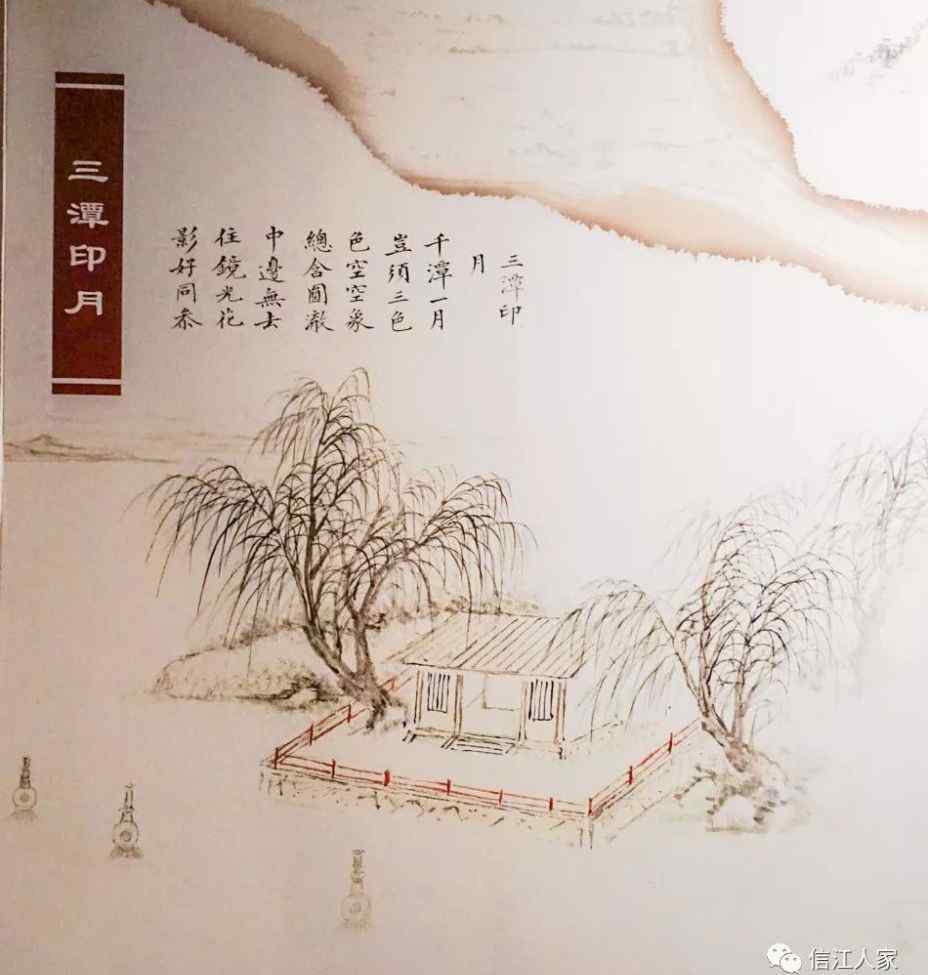 三潭印月
三潭印
月
千潭一月
豈須三色
色空空象
總含圓澈
中邊無
住鏡光花
影好同参
信江人家